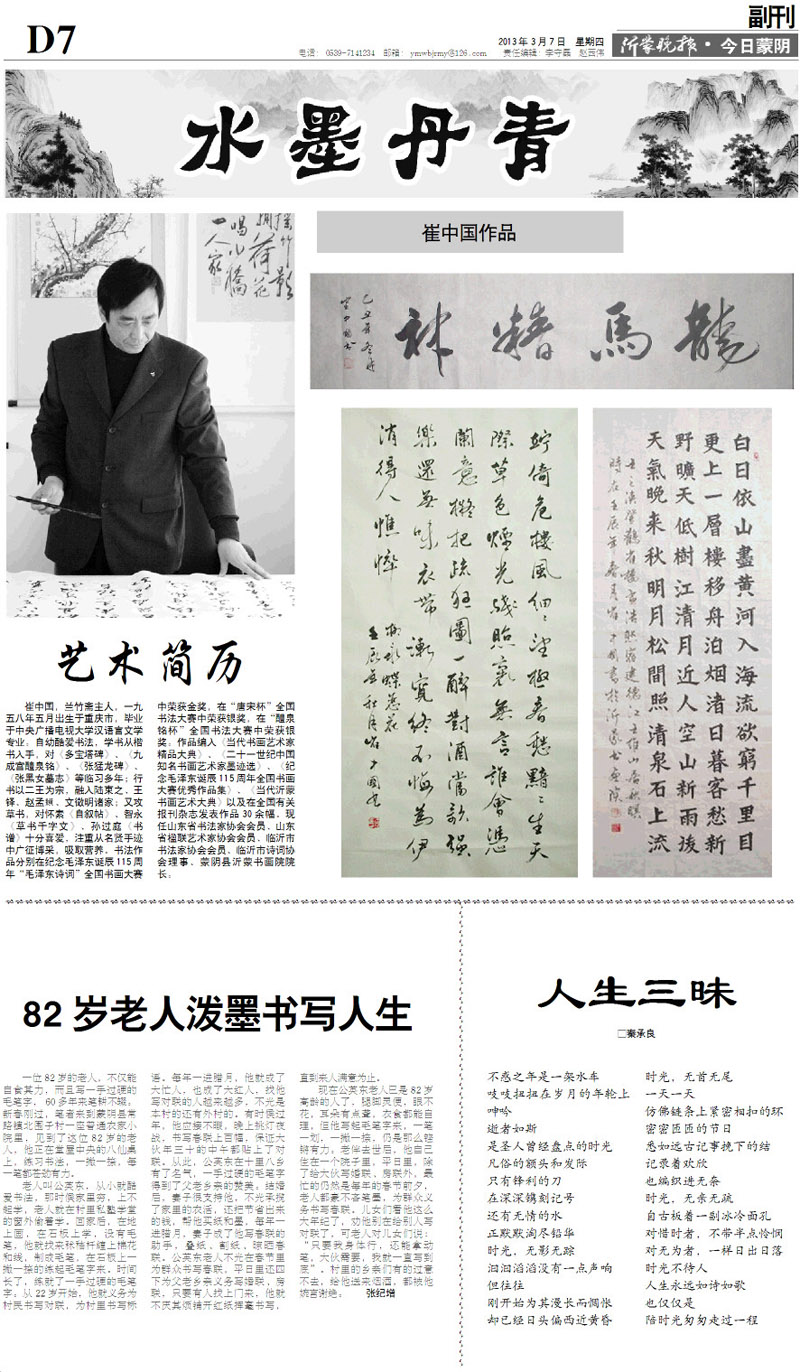 副刊
D7
2013年3月7日 星期四
沂蒙晚报·今日蒙阴
电话: 0539-7141234 邮箱: ymwbjrmy@126.com
责任编辑: 李守磊
水墨丹青
崔中国作品
龍馬精神
竚倚危樓風細細望極春愁黯黯生天
際草色煙光殘照裏無言誰會憑
闌意擬把疏狂圖一醉對酒當歌强
樂還無味衣帶漸寬終不悔為伊
消得人憔悴
白日依山盡黄河入海流欲窮千里目
更上一層樓移舟泊烟渚日暮客愁新
野曠天低樹江清月近人空山新雨後
天氣晚来秋明月松間照清泉石上流
艺术简历
崔中国，兰竹斋主人，一九
五八年五月出生于重庆市，毕业
于中央广播电视大学汉语言文学
专业。自幼酷爱书法，学书从楷
书入手，对《多宝塔碑》、《九
成宫醴泉铭》、《张猛龙碑》、
《张黑女墓志》等临习多年；行
书以二王为宗，融入陆柬之、王
铎、赵孟頫、文徵明诸家；又攻
草书，对怀素《自叙帖》、智永
《草书千字文》，孙过庭《书
谱》十分喜爱，注重从名贤手迹
中广征博采，吸取营养。书法作
品分别在纪念毛泽东诞辰115周
年“毛泽东诗词”全国书画大赛
中荣获金奖，在“唐宋杯”全国
书法大赛中荣获银奖，在“醴泉
铭杯”全国书法大赛中荣获银
奖，作品编入《当代书画艺术家
精品大典》、《二十一世纪中国
知名书画艺术家墨迹选》、《纪
念毛泽东诞辰115周年全国书画
大赛优秀作品集》、《当代沂蒙
书画艺术大典》以及在全国有关
报刊杂志发表作品30余幅，现
任山东省书法家协会会员、山东
省楹联艺术家协会会员、临沂市
书法家协会会员、临沂市诗词协
会理事、蒙阴县沂蒙书画院院
长。
82岁老人泼墨书写人生
一位82岁的老人，不仅能
自食其力，而且写一手过硬的
毛笔字，60多年来笔耕不辍。
新春刚过，笔者来到蒙阴县常
路镇北围子村一座普通农家小
院里，见到了这位82岁的老
人，他正在堂屋中央的八仙桌
上，练习书法，一撇一捺，每
一笔都苍劲有力。
老人叫公英东，从小就酷
爱书法，那时侯家里穷，上不
起学，老人就在村里私塾学堂
的窗外偷着学，回家后，在地
上画，在石板上学，没有毛
笔，他就找来秫秸杆缠上棉花
和线，制成毛笔，在石板上一
撇一捺的练起毛笔字来，时间
长了，练就了一手过硬的毛笔
字。从22岁开始，他就义务为
村民书写对联，为村里书写标
语。每年一进腊月，他就成了
大忙人，也成了大红人，找他
写对联的人越来越多，不光是
本村的还有外村的，有时侯过
年，他应接不暇，晚上挑灯夜
战，书写春联上百幅，保证大
伙年三十的中午都贴上了对
联。从此，公英东在十里八乡
有了名气，一手过硬的毛笔字
得到了父老乡亲的赞美。结婚
后，妻子很支持他，不光承揽
了家里的农活，还把节省出来
的钱，帮他买纸和墨，每年一
进腊月，妻子成了他写春联的
助手，叠纸、割纸、晾晒春
联。公英东老人不光在春节里
为群众书写春联，平日里还四
下为父老乡亲义务写婚联，房
联，只要有人找上门来，他就
不厌其烦铺开红纸挥毫书写，
直到来人满意为止。
现在公英东老人已是82岁
高龄的人了，腿脚灵便，眼不
花，耳朵有点聋，衣食都能自
理，但他写起毛笔字来，一笔
一划，一撇一捺，仍是那么铿
锵有力。老伴去世后，他自己
住在一个院子里，平日里，除
了给大伙写婚联、房联外，最
忙的仍然是每年的春节前夕，
老人都豪不吝笔墨，为群众义
务书写春联，儿女们看他这么
大年纪了，劝他别在给别人写
对联了，可老人对儿女们说：
“只要我身体行，还能拿动
笔，大伙需要，我就一直写到
底”。村里的乡亲们有的过意
不去，给他送来烟酒，都被他
婉言谢绝。 张纪增
人生三味
□秦承良
不惑之年是一架水车
吱吱扭扭在岁月的年轮上
呻吟
逝者如斯
是圣人曾经盘点的时光
凡俗的额头和发际
只有锋利的刀
在深深镌刻记号
还有无情的水
正默默淘尽铅华
时光，无影无踪
汩汩滔滔没有一点声响
但往往
刚开始为其漫长而惆怅
却已经日头偏西近黄昏
时光，无首无尾
一天一天
仿佛链条上紧密相扣的环
密密匝匝的节日
悉如远古记事挽下的结
记录着欢欣
也编织进无奈
时光，无亲无疏
自古板着一副冰冷面孔
对惜时者，不带半点怜悯
对无为者，一样日出日落
时光不待人
人生永远如诗如歌
也仅仅是
陪时光匆匆走过一程